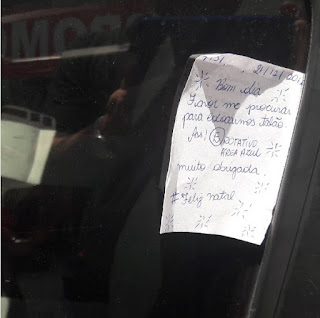 21/12/2012
Bom dia
Favor me procurar
para colocarmos talão.
Ass:
ROTATIVO
ÁREA AZUL
muito obrigada.
# Feliz natal